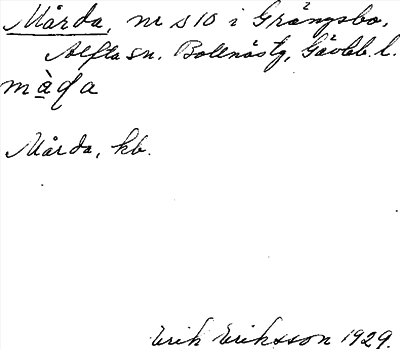 Mårda, nr s 10 i Grängsbo,
Alfta sn. Bollnästg, Gävleb. l.
Mårda, kb.
Erik Eriksson 1929.